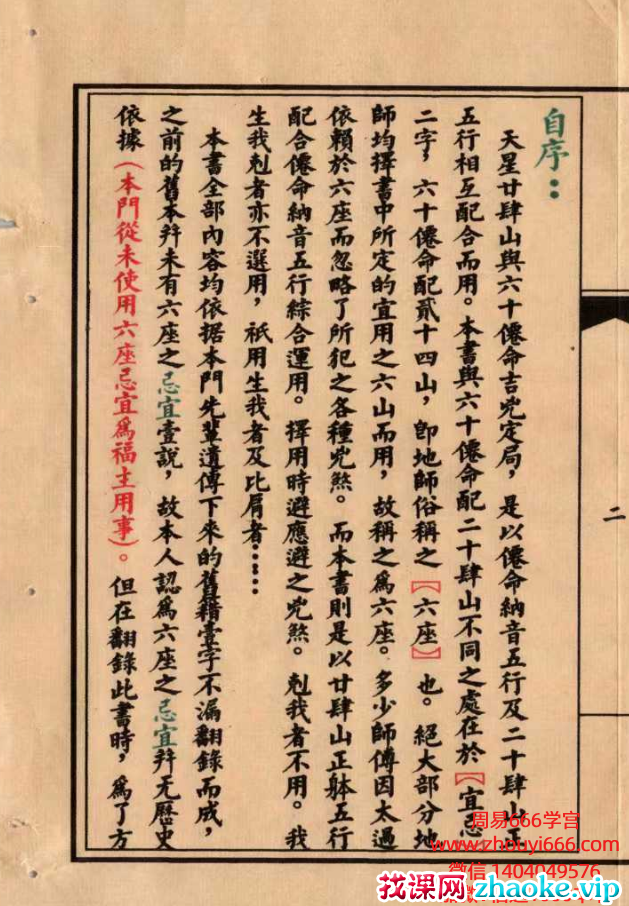 自序：
天星廿肆山與六十僊命吉兇定局，是以僊命納音五行及二十肆山正
五行相互配合而用。本書與六十僊命配二十肆山不同之處在於【宜忌
二字，六十僊命配貳十四山，卽地師俗稱之【六座】也。絕大部分地
師均擇書中所定的宜用之六山而用，故稱之爲六座。多少師傅因太過
依賴於六座而忽略了所犯之各種兇煞。而本書則是以廿肆山正躰五行
配合僊命納音五行綜合運用。擇用時避應避之兇煞。剋我者不用。我
生我剋者亦不選用，祇用生我者及比肩者……
本書全部內容均依据本門先輩遺傳下來的舊籍壹字不漏翻錄而成，
之前的舊本幷未有六座之忌宜壹說，故本人認爲六座之忌宜幷无歷史
依據（本門從未使用六座忌宜爲福主用事）。但在翻錄此書時，爲了方
二
周易666学宫
www.zhouyi666.com
微信1404049576
找课网zhaoke.vip